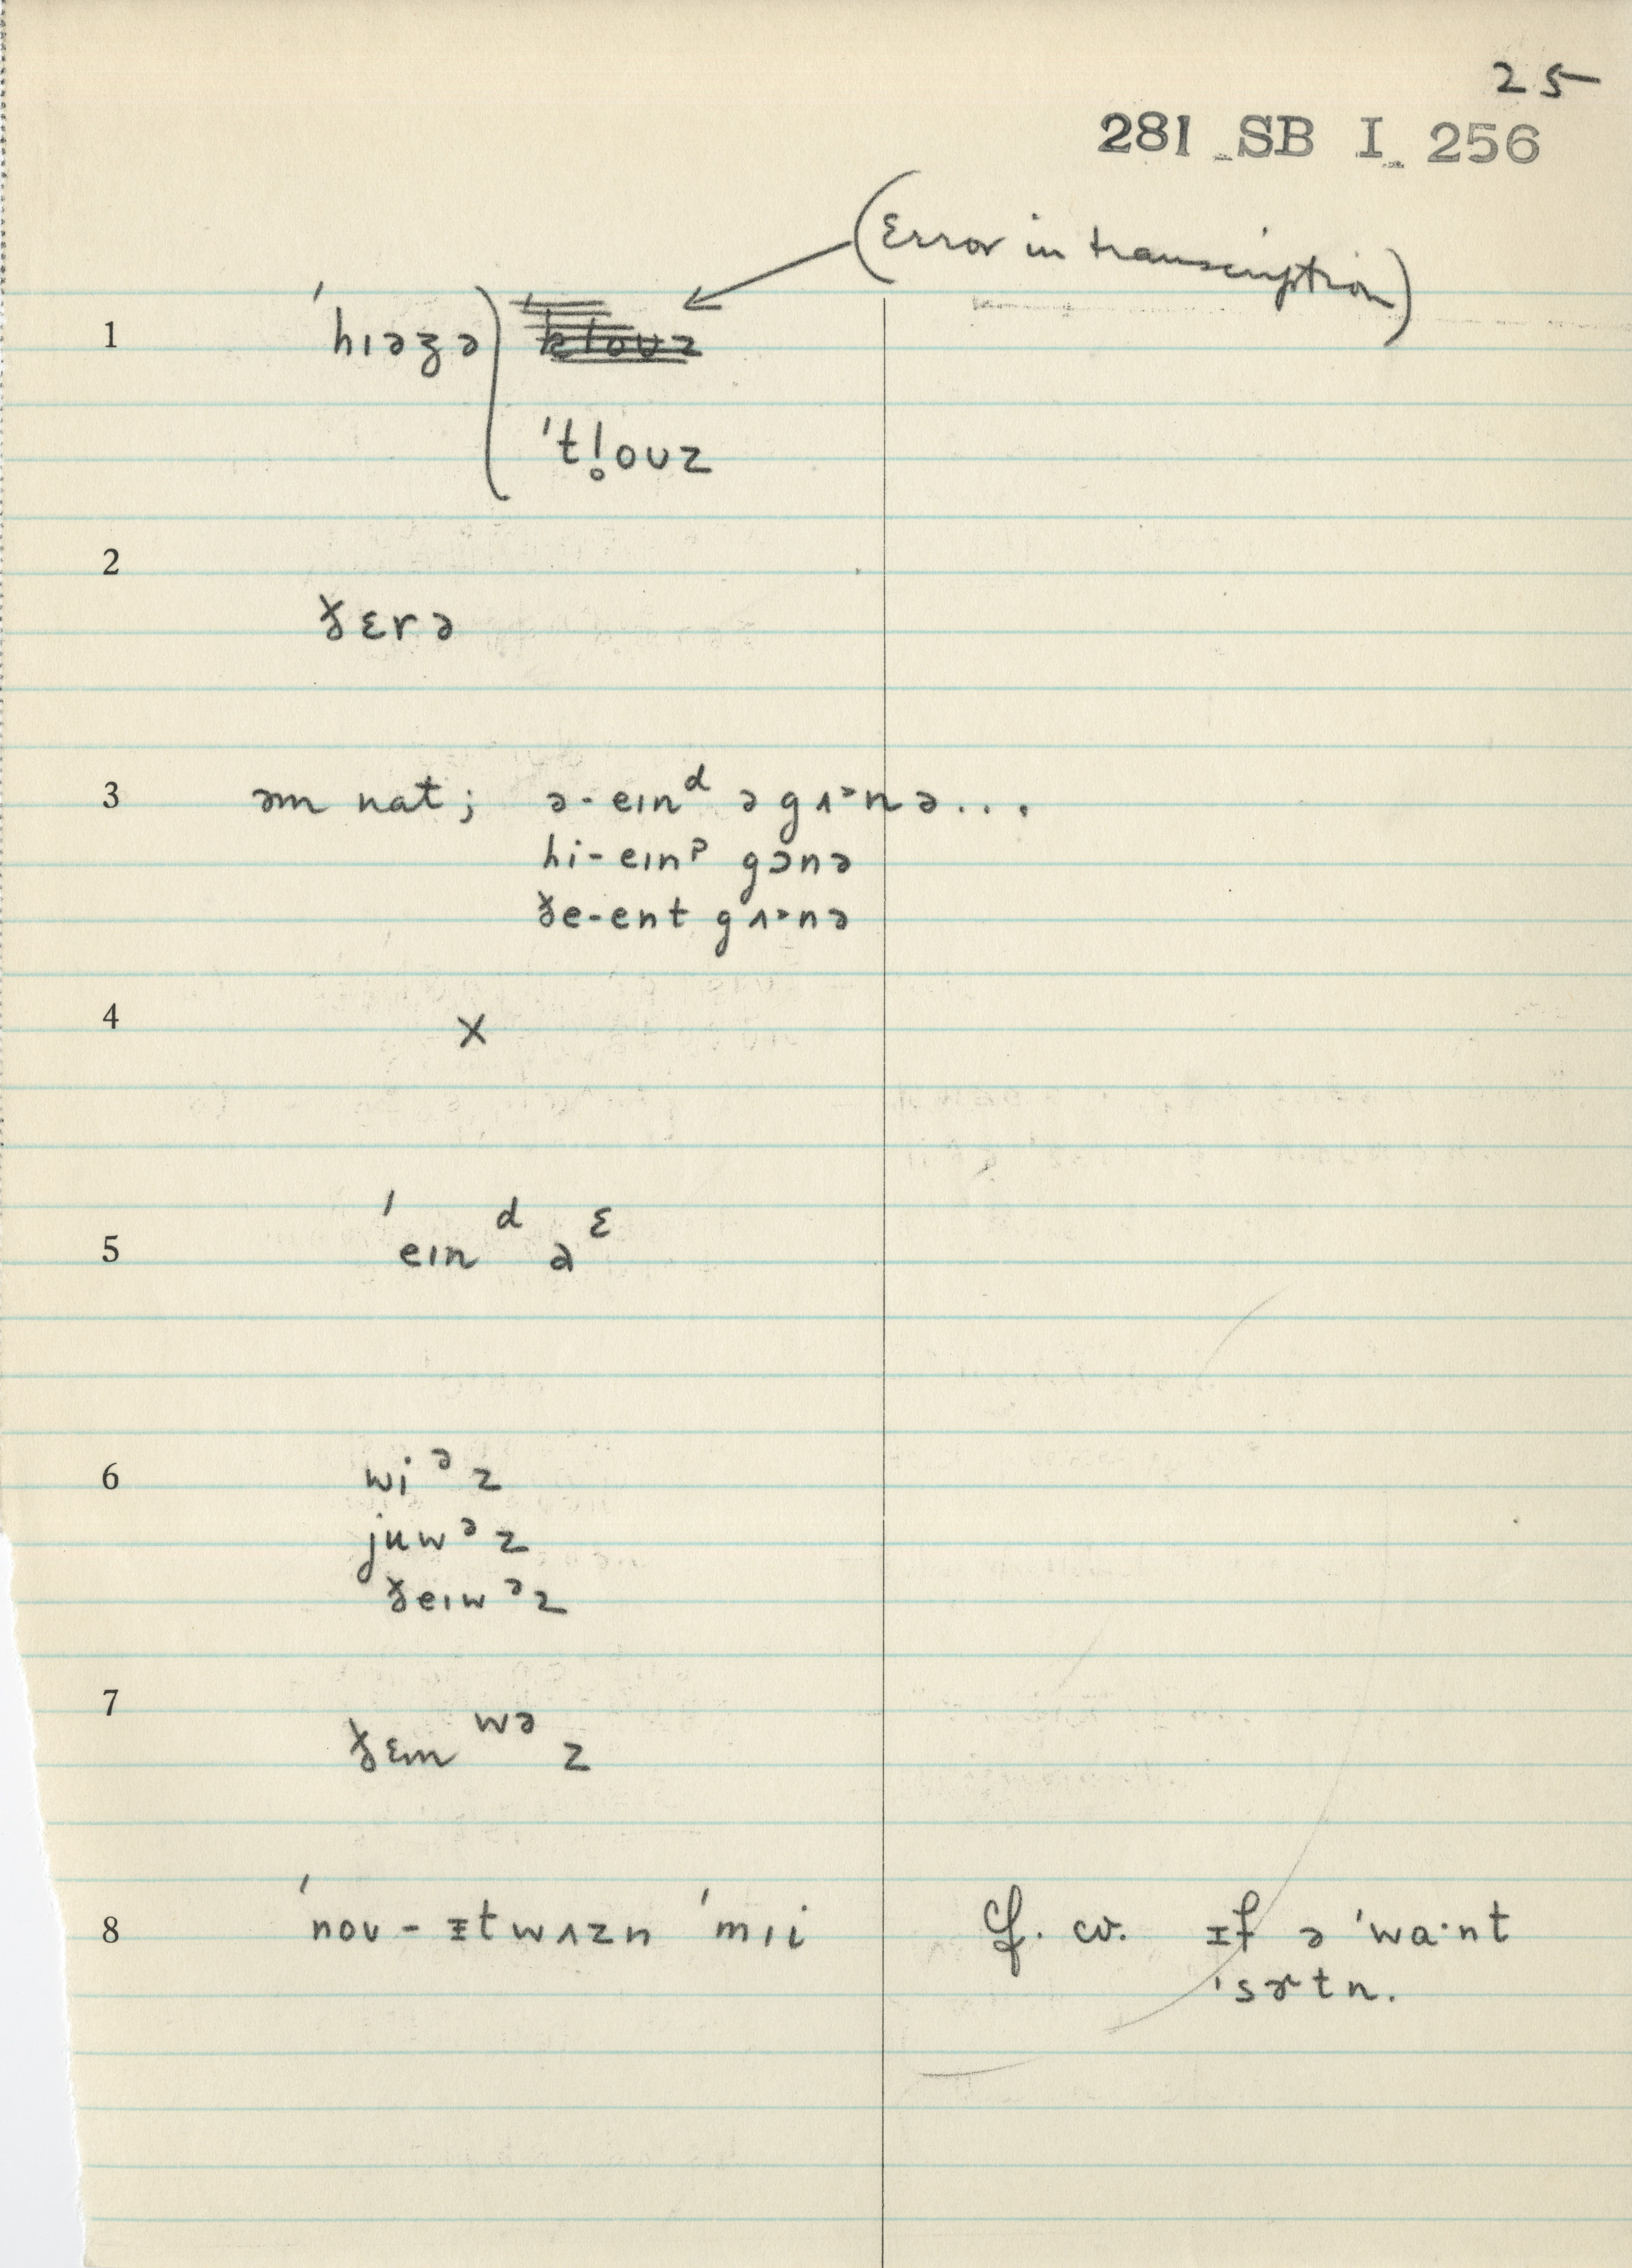 25
281 SB I 256
(Error in transcription)
1 ˈhɪəzə) ˈkloʊz
ˈtl̥oʊz
2 ðɛrə
3 əm nat; ə-eɪnᵈ ə gʌ˞nə...
hi-eɪnᵖ gɔnə
ðe-ent gʌ˞nə
4 X
5 ˈeɪnᵈ əᵋ
6 wiᵊz
juwᵊz
ðeɪwᵊz
7 ðɛmʷᵊz
8 ˈnoʊ-ɪtwʌzn ˈmɪi cf. cv. ɪf ə ˈwa·nt
ˈsɚtn.